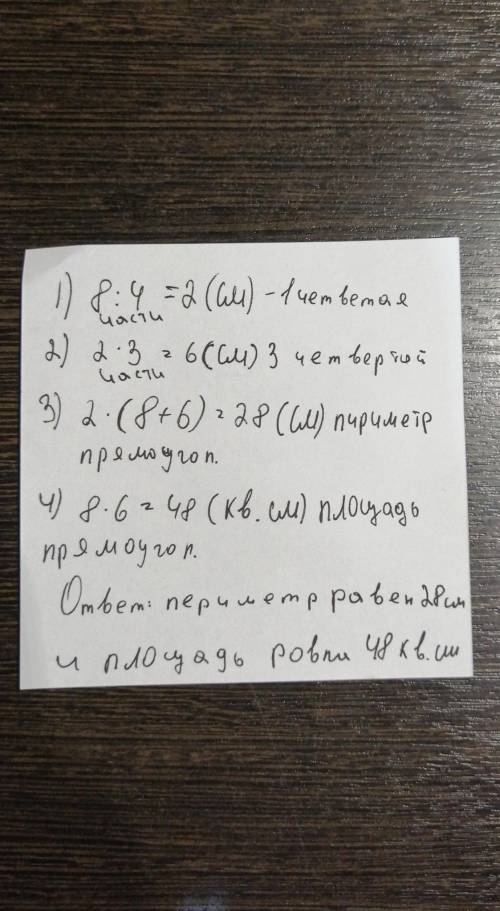 1) 8:4 = 2 (см) - 1 четветая
части
2) 2·3 = 6 (см) 3 четвертой
части
3) 2·(8+6) = 28 (см) пириметр
прямоугол.
4) 8·6 = 48 (кв.см) площадь
прямоугол.
Ответ: периметр равен 28см
и площадь ровна 48 кв.см